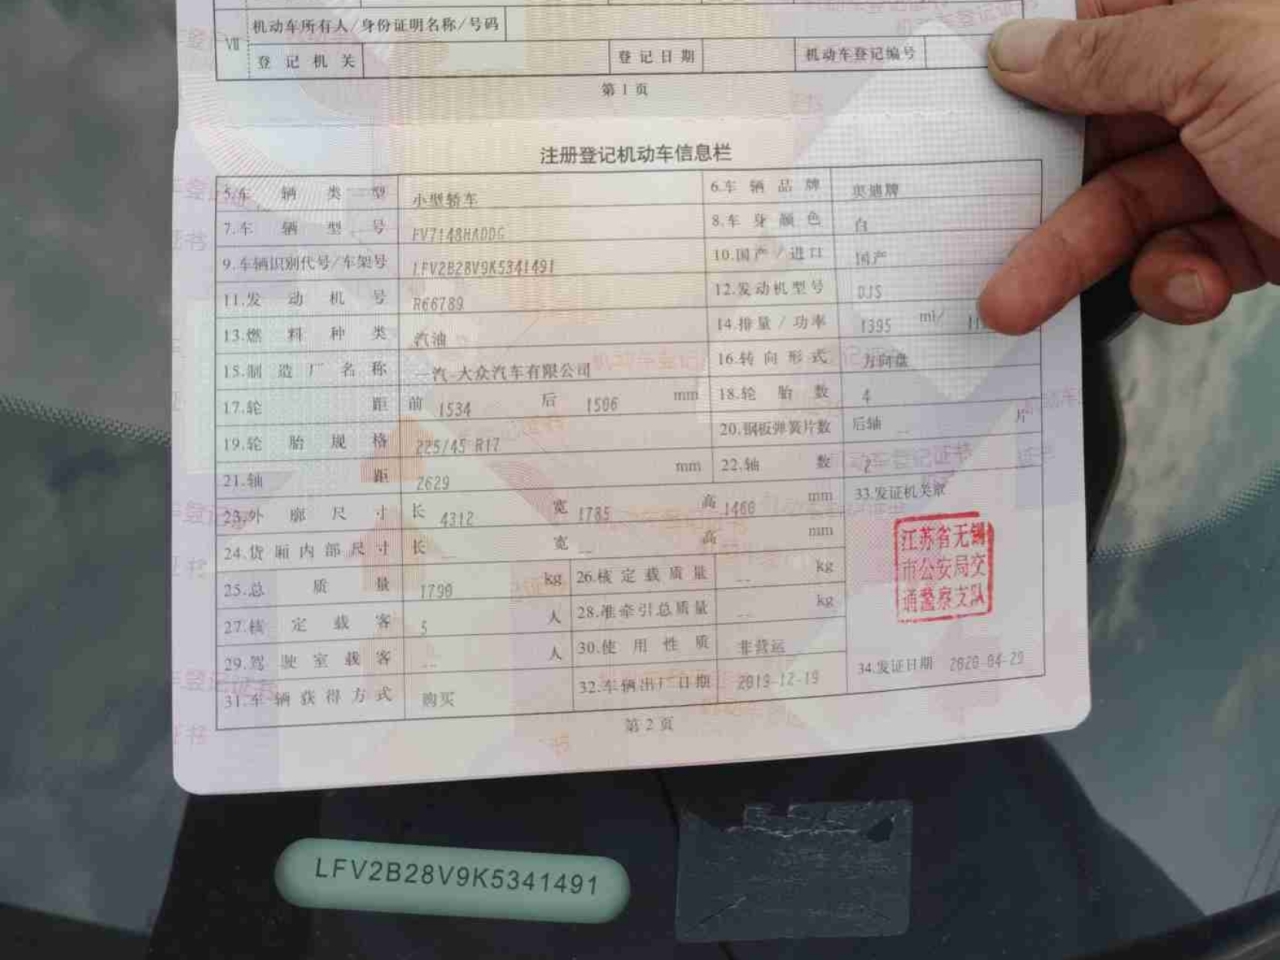 Ⅶ 机动车所有人/身份证明名称/号码
登记机关 登记日期 机动车登记编号
第1页
注册登记机动车信息栏
5.车辆类型 小型轿车 6.车辆品牌 奥迪牌
7.车辆型号 FV7148HADDG 8.车身颜色 白
9.车辆识别代号/车架号 LFV2B28V9K5341491 10.国产/进口 国产
11.发动机号 R66789 12.发动机型号 DJS
13.燃料种类 汽油 14.排量/功率 1395 ml/
15.制造厂名称 一汽-大众汽车有限公司 16.转向形式 方向盘
17.轮距 前 1534 后 1506 mm 18.轮胎数 4
19.轮胎规格 225/45 R17 20.钢板弹簧片数 后轴 -- 片
21.轴距 2629 mm 22.轴数 2
23.外廓尺寸 长 4312 宽 1785 高 1460 mm 33.发证机关章
24.货厢内部尺寸 长 -- 宽 -- 高 mm
江苏省无锡
市公安局交
通警察支队
25.总质量 1790 kg 26.核定载质量 -- kg
27.核定载客 5 人 28.准牵引总质量 -- kg
29.驾驶室载客 -- 人 30.使用性质 非营运
31.车辆获得方式 购买 32.车辆出厂日期 2019-12-19 34.发证日期 2020-04-29
第2页
LFV2B28V9K5341491